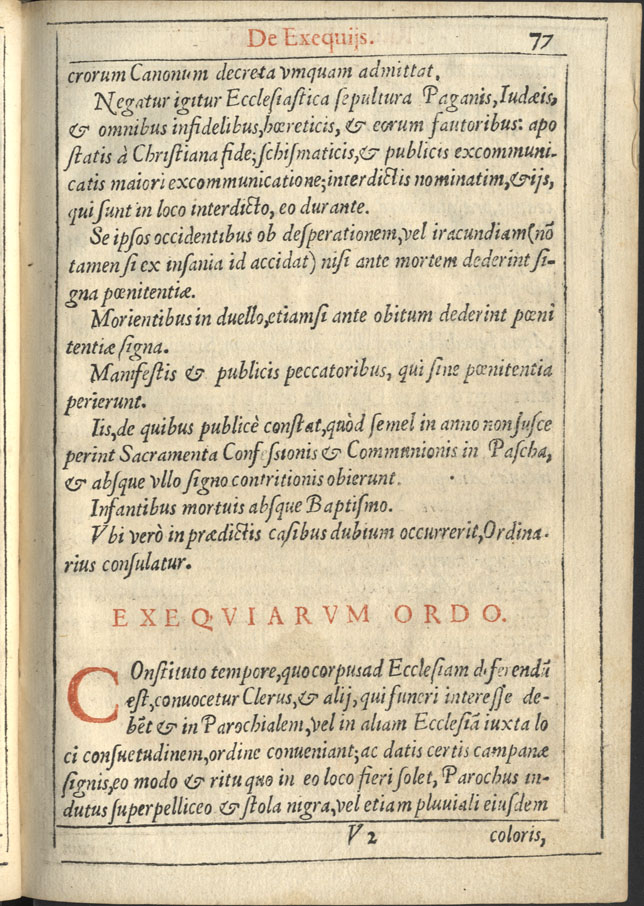 De Exequijs. 77
crorum Canonum decreta vmquam admittat.
Negatur igitur Ecclesiastica sepultura Paganis, Iudæis,
& omnibus infidelibus, hœreticis, & eorum fautoribus: apo
statis à Christiana fide; schismaticis, & publicis excommuni-
catis maiori excommunicatione; interdictis nominatim, & ijs,
qui sunt in loco interdicto, eo durante.
Se ipsos occidentibus ob desperationem, vel iracundiam (nō
tamen si ex insania id accidat) nisi ante mortem dederint si-
gna pœnitentiæ.
Morientibus in duello, etiamsi ante obitum dederint pœni
tentiæ signa.
Manifestis & publicis peccatoribus, qui sine pœnitentia
perierunt.
Iis, de quibus publicè constat, quòd semel in anno non susce
perint Sacramenta Confessionis & Communionis in Pascha,
& absque vllo signo contritionis obierunt.
Infantibus mortuis absque Baptismo.
Vbi verò in prædictis casibus dubium occurrerit, Ordina-
rius consulatur.
EXEQVIARVM ORDO.
COnstituto tempore, quo corpus ad Ecclesiam deferendū
est, conuocetur Clerus, & alij, qui funeri interesse de-
bēt & in Parochialem, vel in aliam Ecclesiā iuxta lo
ci consuetudinem, ordine conueniant; ac datis certis campanæ
signis, eo modo & ritu quo in eo loco fieri solet, Parochus in-
dutus superpelliceo & stola nigra, vel etiam pluuiali eiusdem
V 2 coloris,